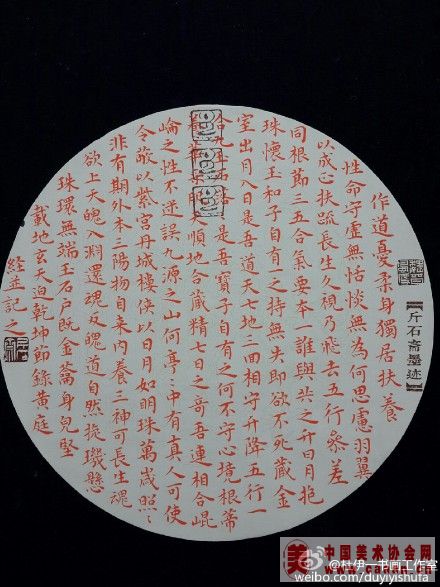 作道憂柔身獨居扶養
性命守虛無恬惔無為何思慮羽翼
以成正扶疏長生久視乃飛去五行參差
同根節三五合氣要本一誰與共之升日月抱
珠懷玉和子自有之持無失即欲不死藏金
室出月入日是吾道天七地三回相守升降五行一
合九玉石是吾寶子自有之何不守心境根蒂
服順地合藏精七日之奇吾連相合崐
崘之性不迷誤九源之山何亭〻中有真人可使
令蔽以紫宮丹城樓俠以日月如明珠萬歲照〻
非有期外本三陽物自来内養三神可長生魂
欲上天魄入淵還魂反魄道自然旋璣懸
珠環無端玉石戶既金籥身皃堅
載地玄天迫乾坤節錄黃庭
經並記之
斤石斋墨迹
美 中国美术协会网
@杜伊一书画工作室
weibo.com/duyiyishufa